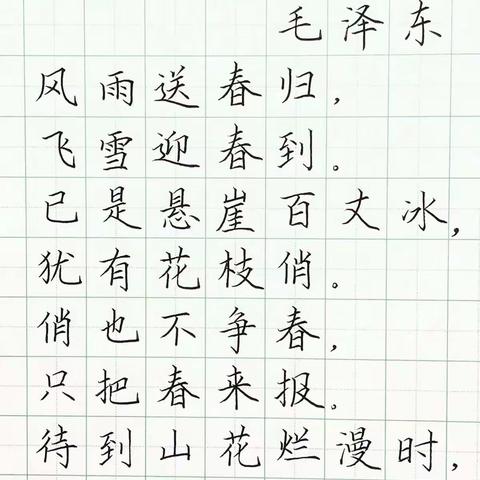 毛泽东
风雨送春归，
飞雪迎春到。
已是悬崖百丈冰，
犹有花枝俏。
俏也不争春，
只把春来报。
待到山花烂漫时，